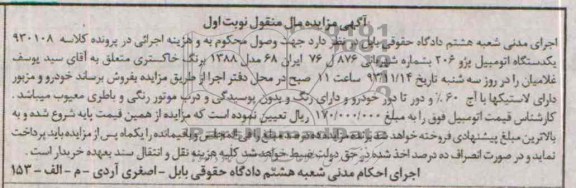 آگهی مزایده مال منقول نوبت اول
اجرای مدنی شعبه هشتم دادگاه حقوقی بابل در نظر دارد جهت وصول محکوم به و هزینه اجرائی در پرونده کلاسه ۹۳۰۱۰۸
یکدستگاه اتومبیل پژو ۲۰۶ بشماره شهربانی ۸۷۶ ل ۷۶ ایران ۶۸ مدل ۱۳۸۸ برنگ خاکستری متعلق به آقای سید یوسف
غلامیان را در روز سه شنبه تاریخ ۹۳/۱۱/۱۴ ساعت ۱۱ صبح در محل دفتر اجرا از طریق مزایده بفروش برساند خودرو و مزبور
دارای لاستیکها با آج ۶۰٪ و دور تا دور خودرو و دارای رنگ و بدون پوسیدگی و درب موتور رنگی و باطری معیوب میباشد.
کارشناس قیمت اتومبیل فوق را به مبلغ ۱۷۰/۰۰۰/۰۰۰ ریال تعیین نموده است که مزایده از همین قیمت پایه شروع شده و به
بالاترین مبلغ پیشنهادی فروخته خواهد شد برنده مزایده ده درصد مبلغ را فی المجلس و باقیمانده را یکماه پس از مزایده باید پرداخت
نماید و در صورت انصراف ده درصد اخذ شده در حق دولت ضبط خواهد شد کلیه هزینه نقل و انتقال سند بعهده خریدار است.
اجرای احکام مدنی شعبه هشتم دادگاه حقوقی بابل - اصغری آردی - م - الف - ۱۵۳